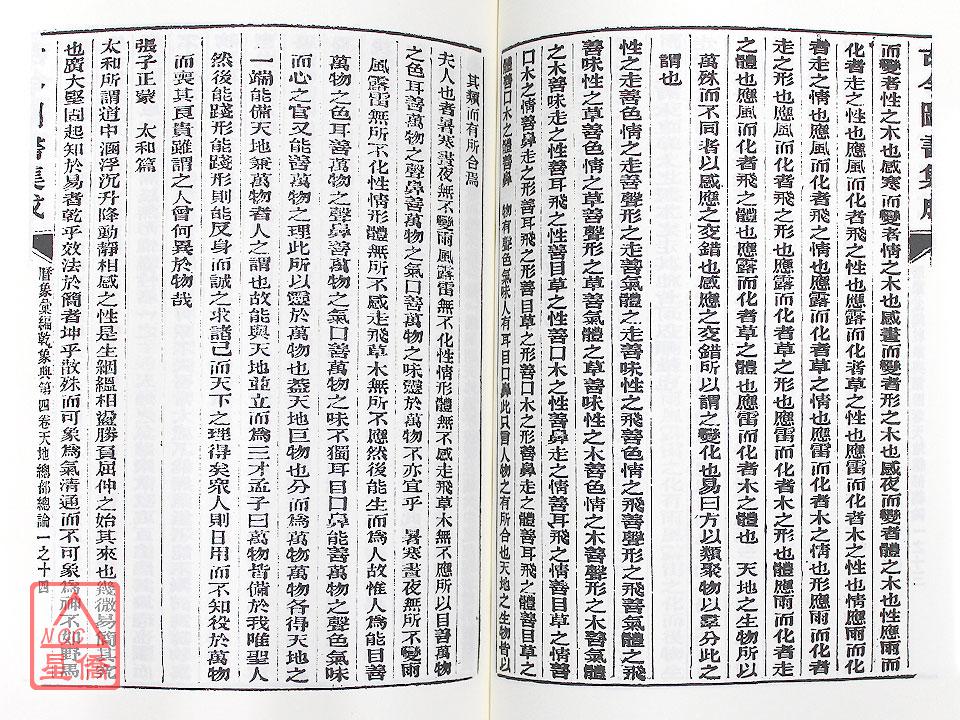 古今圖書集成
而變者性之木也感寒而變者情之木也感晝而變者形之木也感夜而變者體之木也性應雨而
化者走之性也應風而化者飛之性也應露而化者草之性也應雷而化者木之性也情應雨而化
者走之情也應風而化者飛之情也應露而化者草之情也應雷而化者木之情也形應雨而化者
走之形也應風而化者飛之形也應露而化者草之形也應雷而化者木之形也體應雨而化者走
之體也應風而化者飛之體也應露而化者草之體也應雷而化者木之體也 天地之生物所以
萬殊而不同者以感應之交錯也感應之交錯所以謂之變化也易曰方以類聚物以羣分此之
謂也
性之走善色情之走善聲形之走善氣體之走善味性之飛善色情之飛善聲形之飛善氣體之飛
善味性之草善色情之草善聲形之草善氣體之草善味性之木善色情之木善聲形之木善氣體
之木善味走之性善耳飛之性善目草之性善口木之性善鼻走之情善耳飛之情善目草之情善
口木之情善鼻走之形善耳飛之形善目草之形善口木之形善鼻走之體善耳飛之體善目草之
體善口木之體善鼻 物有聲色氣味人有耳目口鼻此只言人物之有所合也天地之生物皆以
其類而有所合焉
夫人也者暑寒晝夜無不變雨風露雷無不化性情形體無不感走飛草木無不應所以目善萬物
之色耳善萬物之聲鼻善萬物之氣口善萬物之味靈於萬物不亦宜乎 暑寒晝夜無所不變雨
風露雷無所不化性情形體無所不感走飛草木無所不應然後能生而為人故惟人為能目善
萬物之色耳善萬物之聲鼻善萬物之氣口善萬物之味不獨耳目口鼻能善萬物之聲色氣味
而心之官又能善萬物之理此所以靈於萬物也蓋天地巨物也分而為萬物萬物各得天地之
一端能備天地兼萬物者人之謂也故能與天地並立而為三才孟子曰萬物皆備於我唯聖人
然後能踐形能踐形則能反身而誠之求諸己而天下之理得矣眾人則日用而不知役於萬物
而喪其良貴雖謂之人曾何異於物哉
張子正蒙 太和篇
太和所謂道中涵浮沉升降動靜相感之性是生絪縕相盪勝負屈伸之始其來也幾微易簡其究
也廣大堅固起知於易者乾乎效法於簡者坤乎散殊而可象為氣清通而不可象為神不如野馬
曆象彙編乾象典第四卷天地總部總論一之十四
NCC
星僑